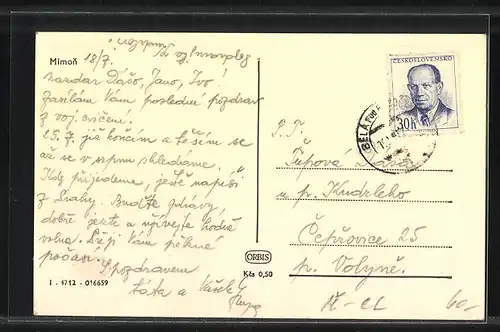 Mimoň
18/7.
Nazdar Dášo, Jano, Ivo!
Zasílám Vám poslední pozdrav
z voj. cvičení.
15.7. již končím a těším se
až se v srpnu shledáme.
Kdy přijedeme, ještě napíši
z Prahy. Buďte zdrávy,
dobře jezte a užívejte hodně
volna. Přeji Vám pěkné
počasí.
S pozdravem
táta a Vašek
I - 1712 - 016659
ORBIS
Kčs 0,50
ČESKOSLOVENSKO
30h
BĚLÁ POD
P. T.
Ťupová Dáša
u p. Kudrleho
Čepřovice 25
p. Volyně.
60-